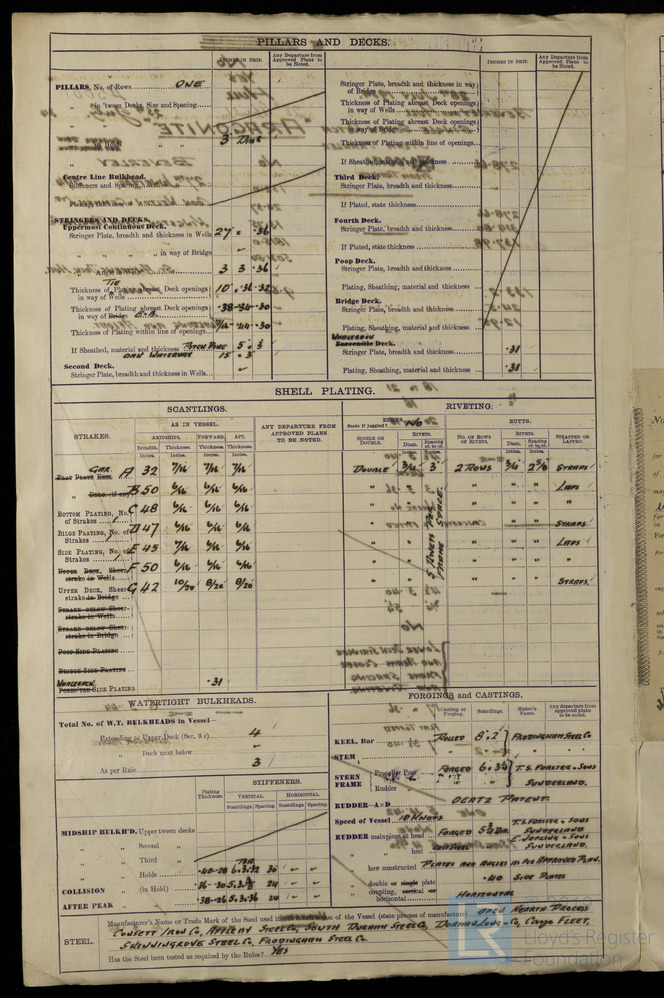 PILLARS AND DECKS.
INCHES IN SHIP.
Any Departure from Approved Plans to be Noted.
PILLARS, No. of Rows ONE
„ in 'tween Decks, Size and Spacing
in Hold 3
Centre Line Bulkhead.
Stiffeners and Spacing
STRINGERS AND DECKS.
Uppermost Continuous Deck.
Stringer Plate, breadth and thickness in Wells 27 × .36
„ „ „ „ in way of Bridge
3 3 .36
Thickness of Tie Plating abreast Deck openings in way of Wells 10 × .36-.32
Thickness of Plating abreast Deck openings in way of Bridge .38-.34-.30
Thickness of Plating within line of openings
If Sheathed, material and thickness PITCH PINE 5 × 3
OAK WATERWAY 15 × 3
Second Deck.
Stringer Plate, breadth and thickness in Wells
INCHES IN SHIP.
Any Departure from Approved Plans to be Noted.
Stringer Plate, breadth and thickness in way of Bridge
Thickness of Plating abreast Deck openings in way of Wells
Thickness of Plating abreast Deck openings in way of Bridge
Thickness of Plating within line of openings
If Sheathed, material and thickness
Third Deck.
Stringer Plate, breadth and thickness
If Plated, state thickness
Fourth Deck.
Stringer Plate, breadth and thickness
If Plated, state thickness
Poop Deck.
Stringer Plate, breadth and thickness
Plating, Sheathing, material and thickness
Bridge Deck.
Stringer Plate, breadth and thickness
Plating, Sheathing, material and thickness
WHALEBACK
Forecastle Deck.
Stringer Plate, breadth and thickness .31
Plating, Sheathing, material and thickness .31
SHELL PLATING.
SCANTLINGS.
RIVETING.
STRAKES.
AS IN VESSEL.
AMIDSHIPS. FORWARD. AFT.
Breadth. Thickness. Thickness. Thickness.
Inches. Inches. Inches. Inches.
ANY DEPARTURE FROM APPROVED PLANS TO BE NOTED.
EDGES
State if joggled? No
BUTTS.
SINGLE OR DOUBLE.
RIVETS.
Diam. Spacing cr. to cr.
NO. OF ROWS OF RIVETS.
RIVETS.
Diam. Spacing cr. to cr.
STRAPPED OR LAPPED.
GAR. A 32 7/16 7/16 7/16 DOUBLE 3/4 3 2 ROWS 3/4 2 5/8 STRAPS
Flat Plate Keel
„ Dblg. (if any) B 50 6/16 6/16 6/16 LAPS
BOTTOM PLATING, No. of Strakes C 48 6/16 6/16 6/16
BILGE PLATING, No. of Strakes D 47 6/16 6/16 6/16 STRAPS
SIDE PLATING, No. of Strakes E 45 7/16 6/16 6/16 LAPS
UPPER DECK, Sheer-strake in Wells F 50 6/16 6/16 6/16
UPPER DECK, Sheer-strake in Bridge G 42 10/20 8/20 8/20 STRAPS
STRAKE BELOW Sheer-strake in Wells
STRAKE BELOW Sheer-strake in Bridge
POOP SIDE PLATING
BRIDGE SIDE PLATING
WHALEBACK
FORE'CTLE SIDE PLATING .31
WATERTIGHT BULKHEADS.
Total No. of W.T. BULKHEADS in Vessel—
Extending to Upper Deck (Sec. 3 c) 4
„ Deck next below
As per Rule 3
Plating Thickness.
STIFFENERS.
VERTICAL. HORIZONTAL.
Scantlings. Spacing. Scantlings. Spacing.
MIDSHIP BULKH'D, Upper tween decks
„ Second „
„ Third „
„ Holds .40-.28 6.3.32 30
COLLISION „ (in Hold) .36-.30 24
AFTER PEAK „ .38-.26 5.3.36 24
FORGINGS AND CASTINGS.
Casting or Forging.
Scantlings.
Maker's Name.
Any departure from approved plans to be noted.
KEEL, Bar ROLLED 8 × 2 FRODINGHAM STEEL CO
STEM
STERN FRAME Propeller Post FORGED 6 × 3 1/4 T.S. FORSTER & SONS
Rudder „ SUNDERLAND.
RUDDER—A×D OERTZ PATENT.
Speed of Vessel 10 KNOTS
RUDDER mainpiece at head FORGED 5 1/2 DIA. T.S. FORSTER & SONS SUNDERLAND
„ heel CAST STEEL JOPLING & SONS SUNDERLAND.
„ how constructed PLATES AND ANGLES AS PER APPROVED PLAN.
„ double or single plate .40 SIDE PLATES
„ coupling, vertical or horizontal HORIZONTAL
STEEL.
Manufacturer's Name or Trade Mark of the Steel used in the construction of the Vessel (state process of manufacture) OPEN HEARTH PROCESS
CONSETT IRON CO, APPLEBY STEEL CO, SOUTH DURHAM STEEL CO, DORMAN LONG & CO, CARGO FLEET,
SKINNINGROVE STEEL CO, FRODINGHAM STEEL CO.
Has the Steel been tested as required by the Rules? YES
Lloyd's Register
Foundation